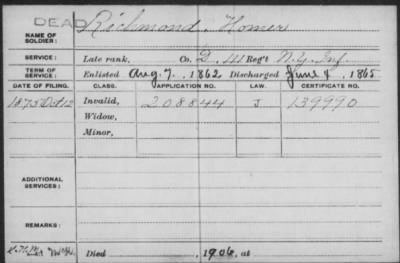 DEAD
NAME OF SOLDIER: Richmond, Homer
SERVICE: Late rank, Co. D, 141 Reg't N.Y. Inf.
TERM OF SERVICE: Enlisted Aug. 7, 1862 Discharged June 8, 1865
DATE OF FILING. CLASS. APPLICATION NO. LAW. CERTIFICATE NO.
1875 Oct 12 Invalid, 208844 J 139990
Widow,
Minor,
ADDITIONAL SERVICES:
REMARKS:
Died 1906, at